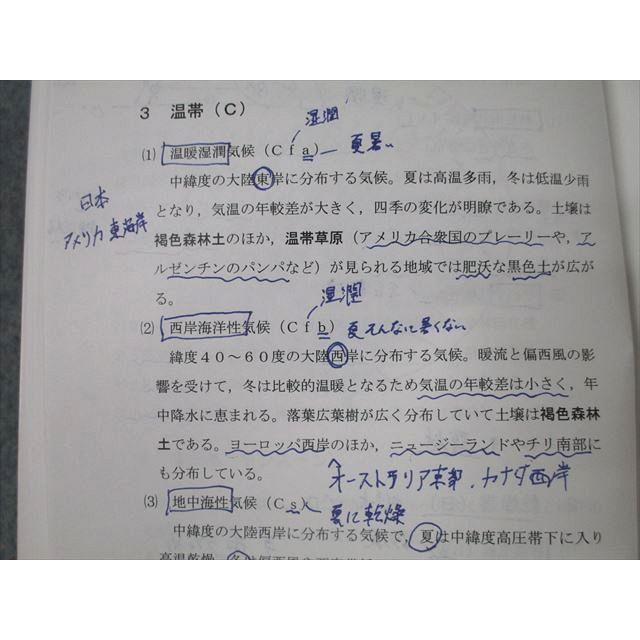 3 温帯（C）
湿潤
(1) 温暖湿潤気候（Cfa） 夏暑い
中緯度の大陸東岸に分布する気候。夏は高温多雨，冬は低温少雨
日本
となり，気温の年較差が大きく，四季の変化が明瞭である。土壌は
アメリカ東海岸
褐色森林土のほか，温帯草原（アメリカ合衆国のプレーリーや，ア
ルゼンチンのパンパなど）が見られる地域では肥沃な黒色土が広が
る。
湿潤
(2) 西岸海洋性気候（Cfb） 夏そんなに暑くない
緯度40～60度の大陸西岸に分布する気候。暖流と偏西風の影
響を受けて，冬は比較的温暖となるため気温の年較差は小さく，年
中降水に恵まれる。落葉広葉樹が広く分布していて土壌は褐色森林
土である。ヨーロッパ西岸のほか，ニュージーランドやチリ南部に
も分布している。
オーストラリア東部，カナダ西岸
(3) 地中海性気候（Cs） 夏に乾燥
中緯度の大陸西岸に分布する気候で，夏は中緯度高圧帯下に入り
高温乾燥